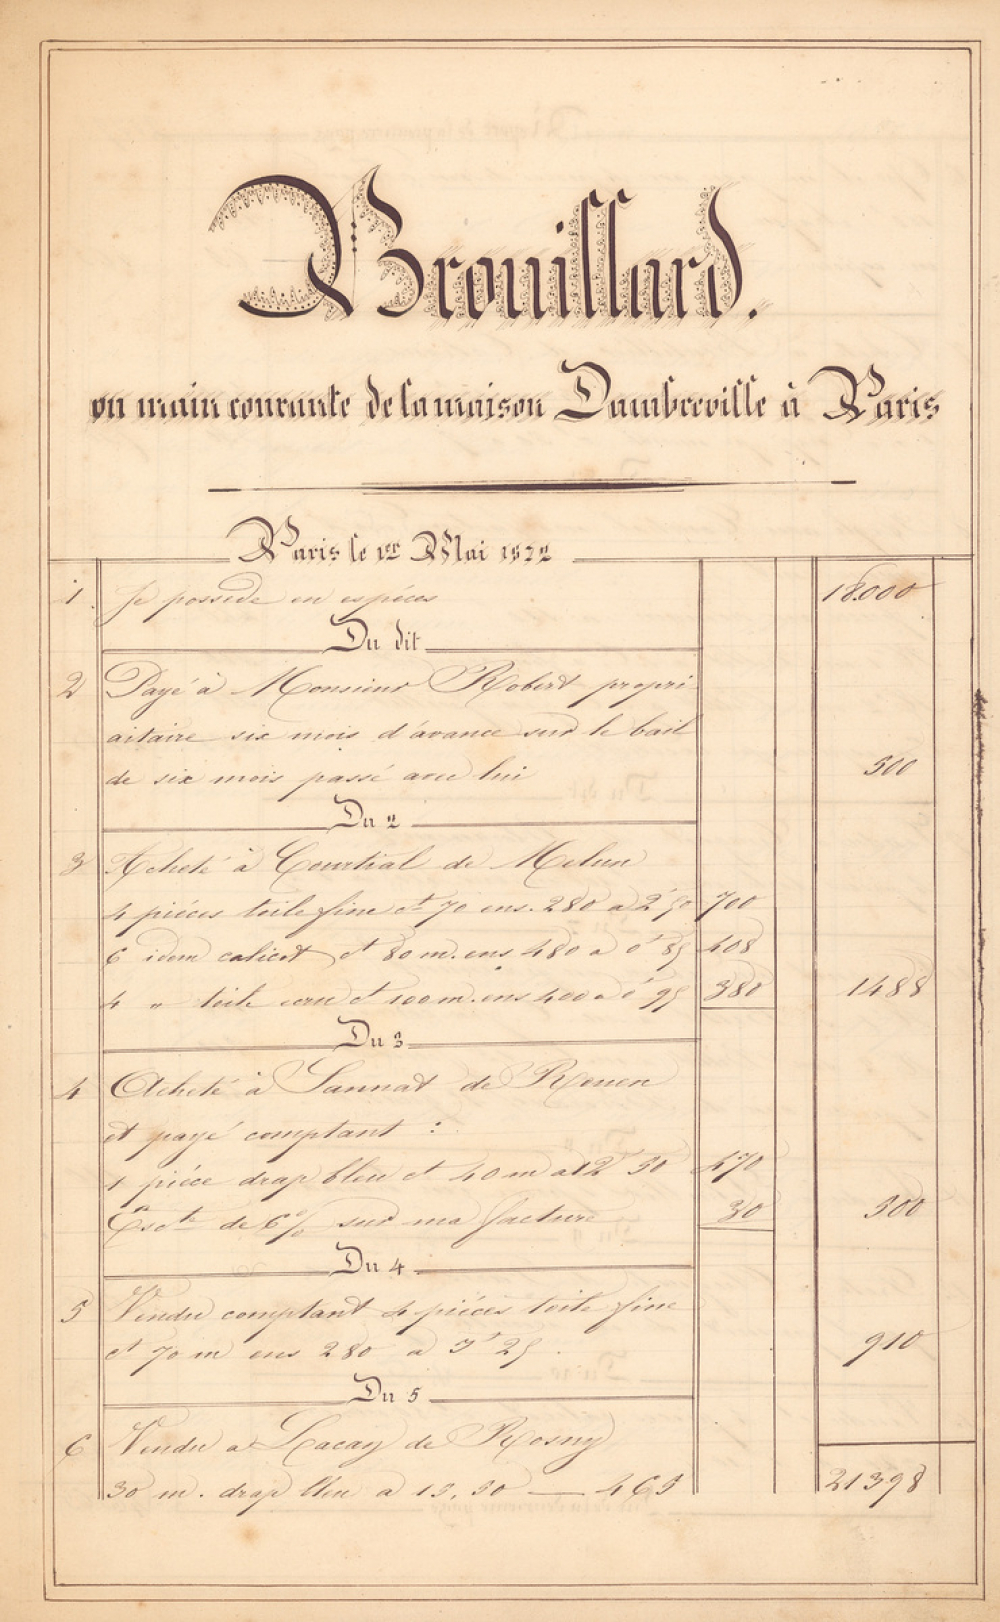 Brouillard.
ou main courante de la maison Dambreville à Paris
Paris le 1er Mai 1872
1 Je possède en espèces 18.000
Du dit
2 Payé à Monsieur Robert propri
aitaire six mois d'avance sur le bail
de six mois passé avec lui 500
Du 2
3 Acheté à Courtial de Melun
4 pièces toile fine ct 70 ens. 280 a 2f50 700
6 idem calicot ct 80 m. ens 480 a 0f 85 408
4 " toile ecru ct 100 m. ens 400 a 0f 95 380 1488
Du 3
4 Acheté à Sannat de Rouen
et payé comptant :
1 pièce drap bleu ct 40 m a 12f 50 470
Escte de 6% sur ma facture 30 500
Du 4
5 Vendu comptant 4 pièces toile fine
ct 70 m ens 280 a 3f 25 . 910
Du 5
6 Vendu a Lacay de Rosny
30 m. drap bleu a 15,50 — 465 21398